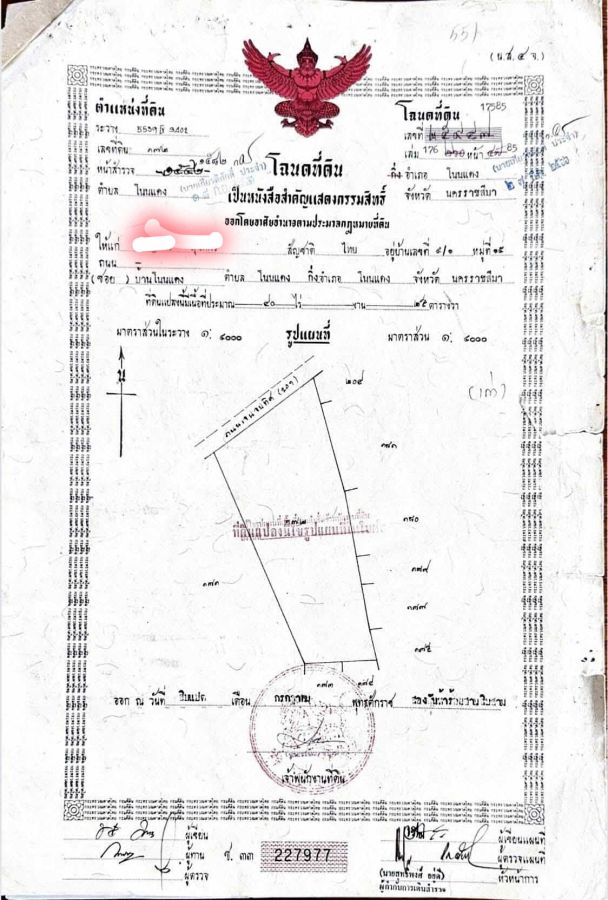 551
(น.ส. ๔ จ.)
ตำแหน่งที่ดิน
ระวาง
เลขที่ดิน ๓๗๒
หน้าสำรวจ ๑๕๔๒
ตำบล โนนแดง
โฉนดที่ดิน
เลขที่ 17585
เล่ม 176 หน้า 85
กิ่ง อำเภอ โนนแดง
จังหวัด นครราชสีมา
โฉนดที่ดิน
เป็นหนังสือสำคัญแสดงกรรมสิทธิ์
ออกโดยอาศัยอำนาจตามประมวลกฎหมายที่ดิน
ให้แก่ สัญชาติ ไทย อยู่บ้านเลขที่ ๔/๑ หมู่ที่ ๑๕
ถนน
(ซอย) บ้านโนนแดง ตำบล โนนแดง กิ่งอำเภอ โนนแดง จังหวัด นครราชสีมา
ที่ดินแปลงนี้มีเนื้อที่ประมาณ ๔๐ ไร่ งาน ๒๕ ตารางวา
มาตราส่วนในระวาง ๑: ๔๐๐๐ รูปแผนที่ มาตราส่วน ๑: ๔๐๐๐
น
(เก่า)
๒๐๔
๓๗๒
๑๘๐
๑๗๙
๑๗๗
๑๗๕
๑๗๔
๑๗๓
ออก ณ วันที่ สิบแปด เดือน กรกฎาคม พุทธศักราช สองพันห้าร้อยสามสิบสาม
เจ้าพนักงานที่ดิน
ผู้เขียน
ผู้ทาน
ผู้ตรวจ
ช. ๓๓ 227977
ผู้เขียนแผนที่
ผู้ตรวจแผนที่
หัวหน้าการ
ผู้กำกับการเดินสำรวจ